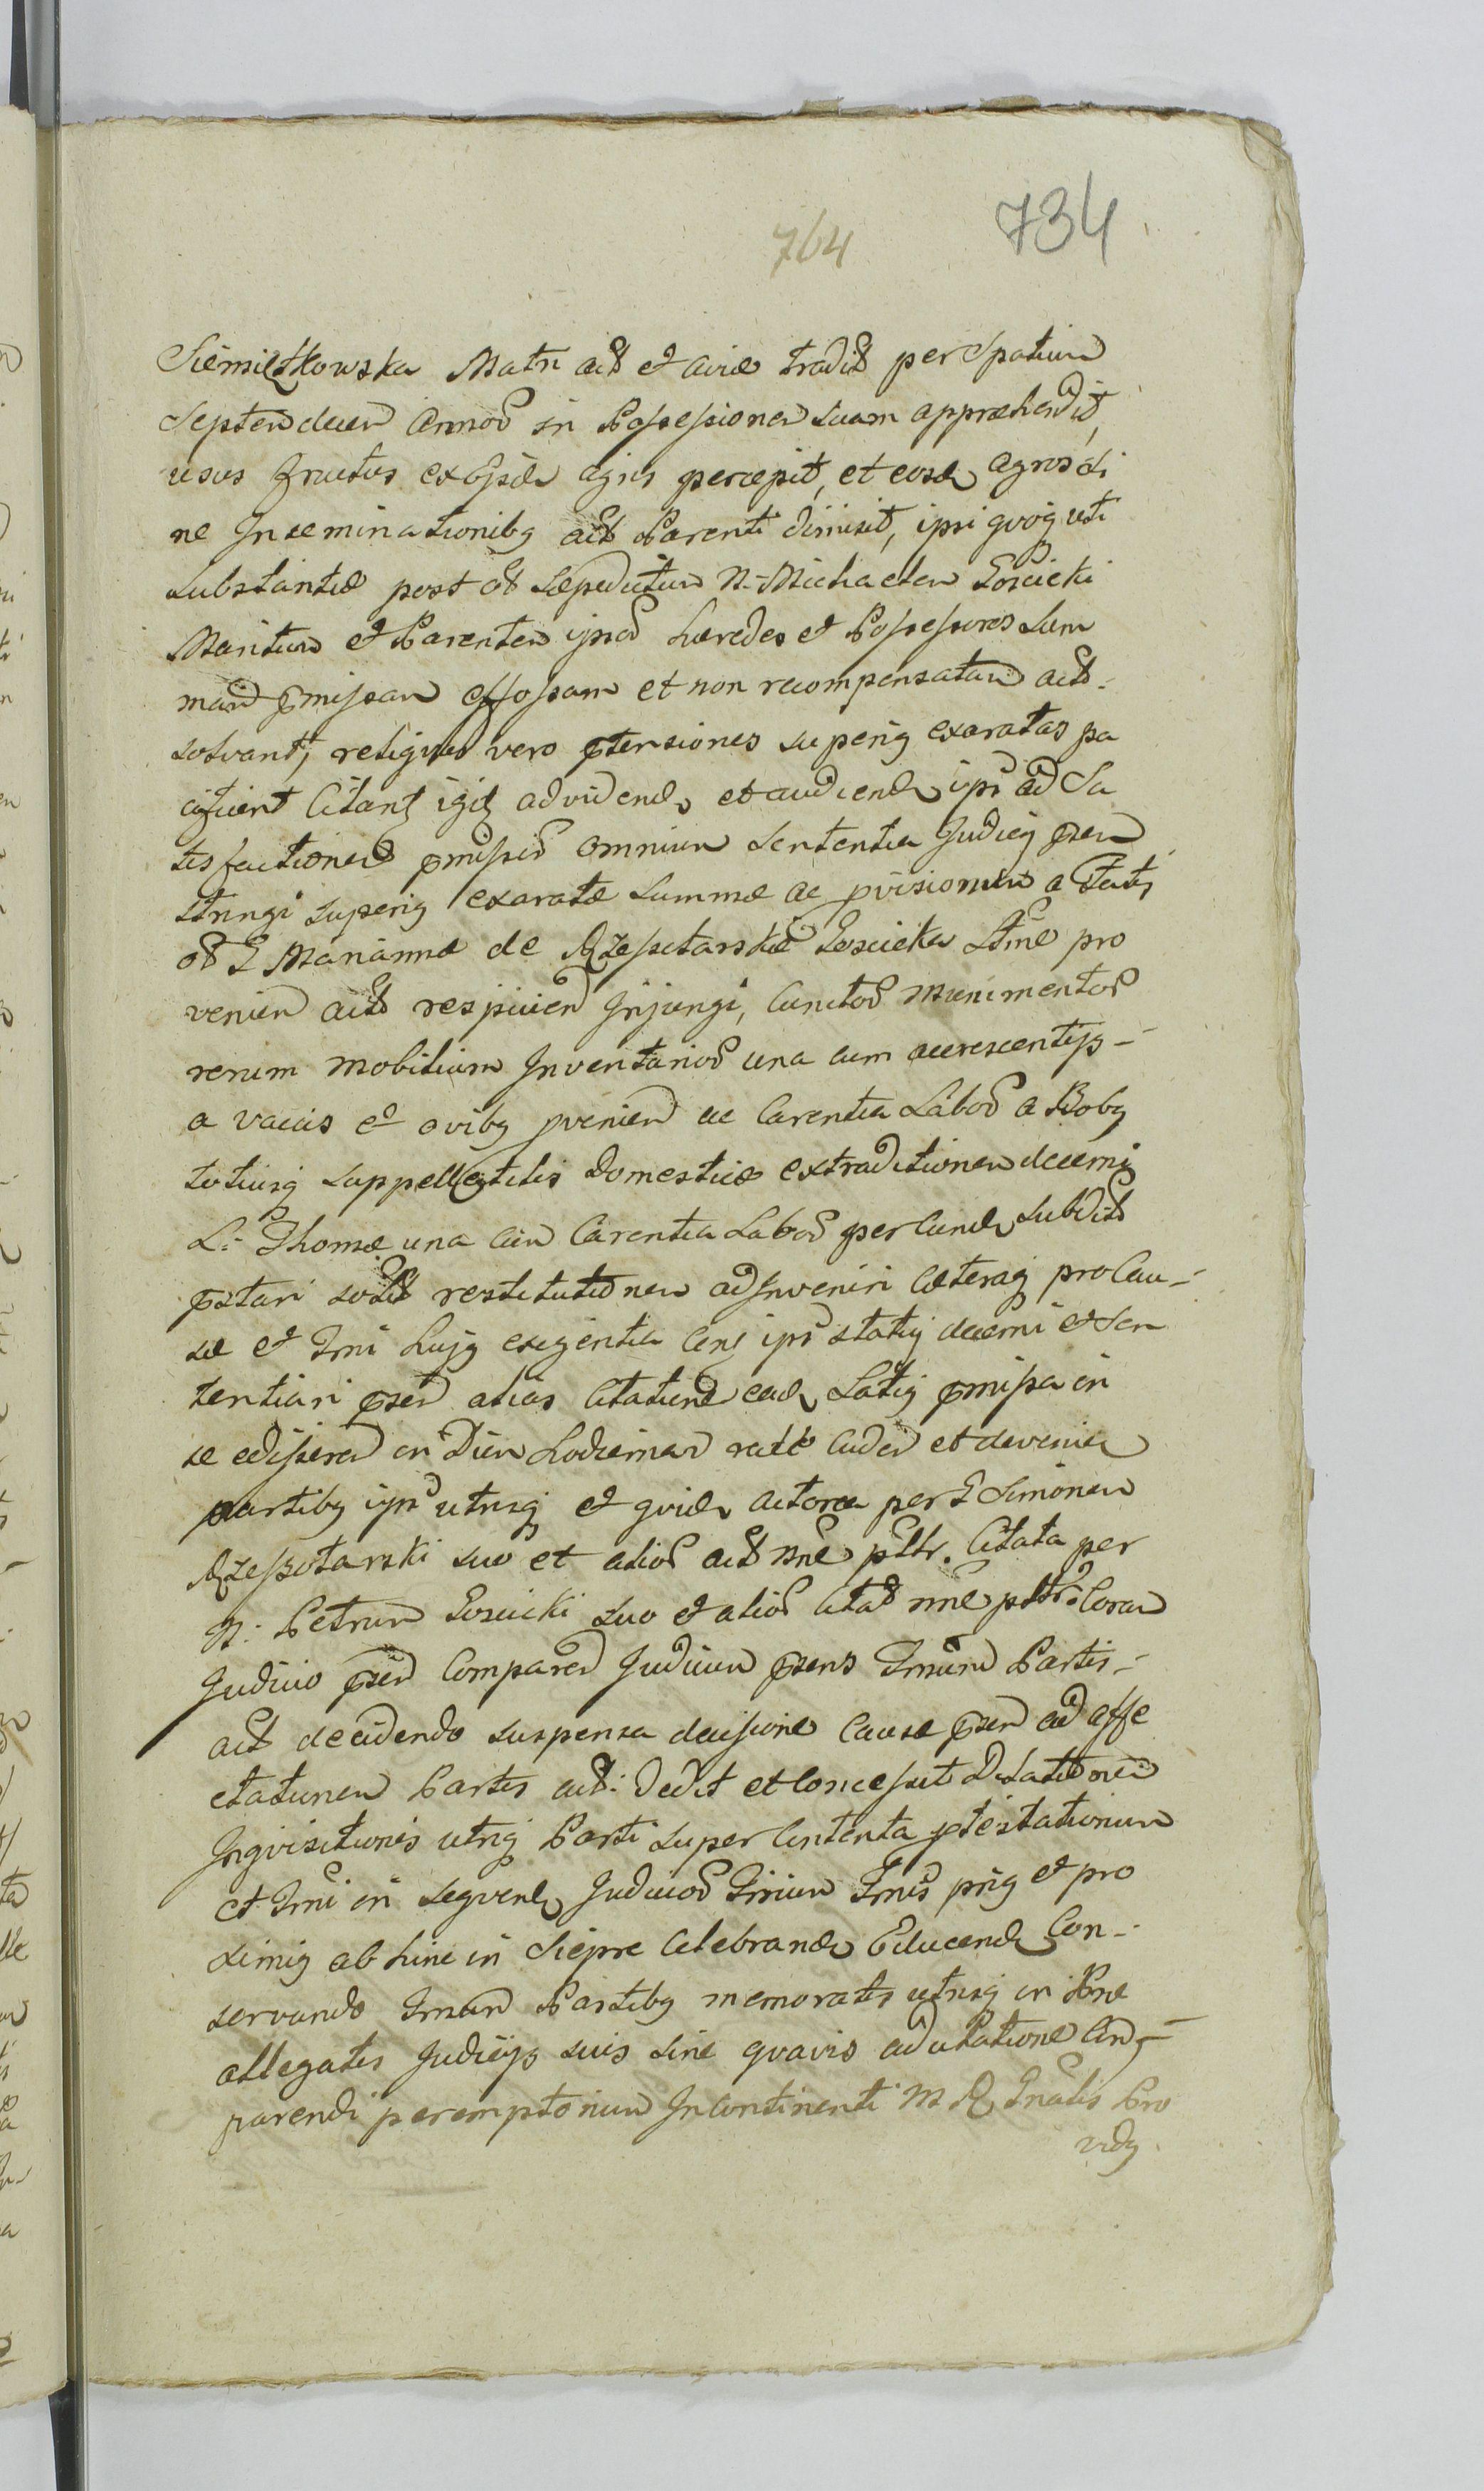 764 734
Siemiętkowska Matri act et aviæ tradit per Spatium
Septemdecem Annoꝝ in Possessionem suam appræhendit,
usus fructus ex ijsdem agris percepit, et eosdem agros si
ne Inseminationibꝫ act Parenti dimisit, ipsi qvoqꝫ uti
substantiæ post ol Sæpedictum N. Michaelem Łosicki
Maritum et Parentem ipsoꝝ hæredes et Possessores Sum
mam pmissam effossam et non recompensatam act.
solvant, reliqvas vero ptensiones superiꝫ exaratas pa
cificent Citantꝫ igitꝫ ad videndꝫ et audiendꝫ ipsi ad Sa
tisfactionem pmissoꝝ omnium Sententia Judicij psen
stringi superiꝫ exaratæ Summæ ac pvisionum a
ol G Marianna de Rzeszotarskie Łosicka pro
venien act respicien Injungi, Cunctoꝝ Munimentoꝝ
rerum mobilium Inventarioꝝ una cum accrescentijs
a vaccis et ovibꝫ pvenien ac Carentia Laboꝝ a Bobꝫ
totiusqꝫ suppellectilis Domesticæ extraditionem decerni
L. Thomæ una cum Carentia Laboꝝ per eundem Subdit
pstari solit restitutionem adinveniri Cæteraqꝫ pro Cau
sæ et Trni hujꝫ exigentia ipsi decerni et Sen
tentiari psen alias Citatione eadem Latiꝫ pmissa in
se in Diem Hodiernam et deveniens
partibꝫ ipsis utrisqꝫ et qvidem actorea per G Simonem
Rzeszotarski suo et alioꝝ act nne psltr. Citata per
N. Petrum Łosicki suo et alioꝝ Citat nne psltr. Coram
Judicio psen Comparen Judicium psens Trnum Partis
act decidendo suspensa decisione Causæ psen ad affe
ctationem Partis act. dedit et Concessit Dilationem
Inqvisitionis utriqꝫ Parti super Contenta ptestationum
et Trni in seqvend Judicioꝝ Trrium Trnis priꝫ et pro
ximiꝫ abhinc in Sieprc Celebrand Educend Con-
servando Trnum Partibꝫ memoratis utrisqꝫ in Præ
allegatis Judicijs suis sine qvavis adcitatione Com
parendi peremptorium Incontinenti M R Gnalis Pro
vidꝫ